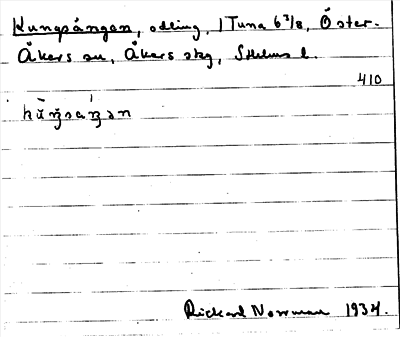 Kungsängen, odling, 1 Tuna 6 7/8, Öster-
Åkers sn, Åkers skg, Sthlms l.
410
Rickard Norrman 1934.